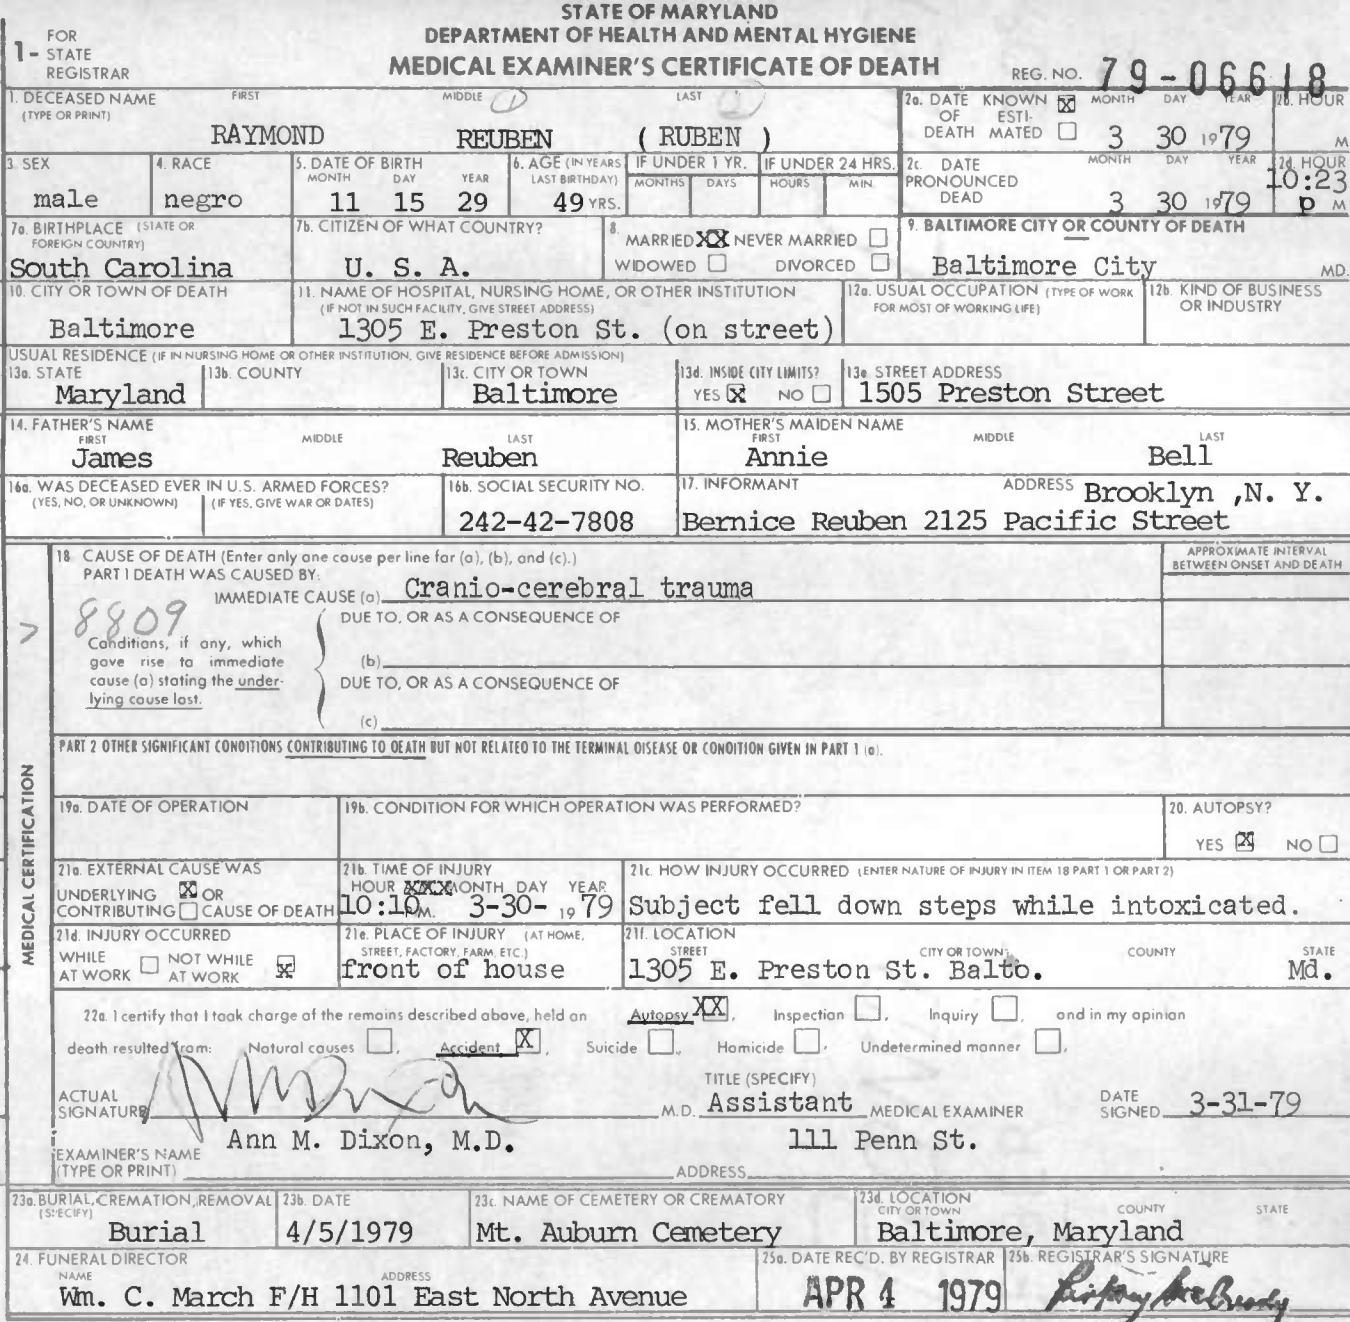 STATE OF MARYLAND
DEPARTMENT OF HEALTH AND MENTAL HYGIENE
MEDICAL EXAMINER'S CERTIFICATE OF DEATH
1- FOR STATE REGISTRAR
REG. NO. 79-06618
1. DECEASED NAME (TYPE OR PRINT) FIRST MIDDLE LAST
RAYMOND REUBEN ( RUBEN )
2a. DATE OF DEATH KNOWN X ESTIMATED MONTH DAY YEAR 2b. HOUR
3 30 1979 M
3. SEX 4. RACE 5. DATE OF BIRTH MONTH DAY YEAR 6. AGE (IN YEARS LAST BIRTHDAY) IF UNDER 1 YR. MONTHS DAYS IF UNDER 24 HRS. HOURS MIN.
male negro 11 15 29 49 YRS.
2c. DATE PRONOUNCED DEAD MONTH DAY YEAR 2d. HOUR
3 30 1979 10:23 P M
7a. BIRTHPLACE (STATE OR FOREIGN COUNTRY) 7b. CITIZEN OF WHAT COUNTRY?
South Carolina U. S. A.
8. MARRIED XX NEVER MARRIED
WIDOWED DIVORCED
9. BALTIMORE CITY OR COUNTY OF DEATH
Baltimore City MD.
10. CITY OR TOWN OF DEATH
Baltimore
11. NAME OF HOSPITAL, NURSING HOME, OR OTHER INSTITUTION
(IF NOT IN SUCH FACILITY, GIVE STREET ADDRESS)
1305 E. Preston St. (on street)
12a. USUAL OCCUPATION (TYPE OF WORK FOR MOST OF WORKING LIFE)
12b. KIND OF BUSINESS OR INDUSTRY
USUAL RESIDENCE (IF IN NURSING HOME OR OTHER INSTITUTION, GIVE RESIDENCE BEFORE ADMISSION)
13a. STATE 13b. COUNTY 13c. CITY OR TOWN 13d. INSIDE CITY LIMITS? 13e. STREET ADDRESS
Maryland Baltimore YES X NO 1505 Preston Street
14. FATHER'S NAME FIRST MIDDLE LAST
James Reuben
15. MOTHER'S MAIDEN NAME FIRST MIDDLE LAST
Annie Bell
16a. WAS DECEASED EVER IN U.S. ARMED FORCES?
(YES, NO, OR UNKNOWN) (IF YES, GIVE WAR OR DATES)
16b. SOCIAL SECURITY NO.
242-42-7808
17. INFORMANT ADDRESS Brooklyn ,N. Y.
Bernice Reuben 2125 Pacific Street
MEDICAL CERTIFICATION
18. CAUSE OF DEATH (Enter only one cause per line for (a), (b), and (c).)
APPROXIMATE INTERVAL BETWEEN ONSET AND DEATH
PART 1 DEATH WAS CAUSED BY:
IMMEDIATE CAUSE (a) Cranio-cerebral trauma
8809
DUE TO, OR AS A CONSEQUENCE OF
Conditions, if any, which gave rise to immediate cause (a) stating the underlying cause last.
(b)
DUE TO, OR AS A CONSEQUENCE OF
(c)
PART 2 OTHER SIGNIFICANT CONDITIONS CONTRIBUTING TO DEATH BUT NOT RELATED TO THE TERMINAL DISEASE OR CONDITION GIVEN IN PART 1 (a).
19a. DATE OF OPERATION 19b. CONDITION FOR WHICH OPERATION WAS PERFORMED? 20. AUTOPSY?
YES X NO
21a. EXTERNAL CAUSE WAS
UNDERLYING X OR
CONTRIBUTING CAUSE OF DEATH
21b. TIME OF INJURY
HOUR XXX MONTH DAY YEAR
10:10 P.M. 3-30- 1979
21c. HOW INJURY OCCURRED (ENTER NATURE OF INJURY IN ITEM 18 PART 1 OR PART 2)
Subject fell down steps while intoxicated.
21d. INJURY OCCURRED
WHILE AT WORK NOT WHILE AT WORK X
21e. PLACE OF INJURY (AT HOME, STREET, FACTORY, FARM, ETC.)
front of house
21f. LOCATION STREET CITY OR TOWN COUNTY STATE
1305 E. Preston St. Balto. Md.
22a. I certify that I took charge of the remains described above, held an Autopsy XX, Inspection, Inquiry, and in my opinion
death resulted from: Natural causes, Accident X, Suicide, Homicide, Undetermined manner.
ACTUAL SIGNATURE M.D.
TITLE (SPECIFY) Assistant MEDICAL EXAMINER
DATE SIGNED 3-31-79
EXAMINER'S NAME (TYPE OR PRINT) Ann M. Dixon, M.D. ADDRESS 111 Penn St.
23a. BURIAL, CREMATION, REMOVAL (SPECIFY) 23b. DATE 23c. NAME OF CEMETERY OR CREMATORY 23d. LOCATION CITY OR TOWN COUNTY STATE
Burial 4/5/1979 Mt. Auburn Cemetery Baltimore, Maryland
24. FUNERAL DIRECTOR NAME ADDRESS
Wm. C. March F/H 1101 East North Avenue
25a. DATE REC'D. BY REGISTRAR
APR 4 1979
25b. REGISTRAR'S SIGNATURE